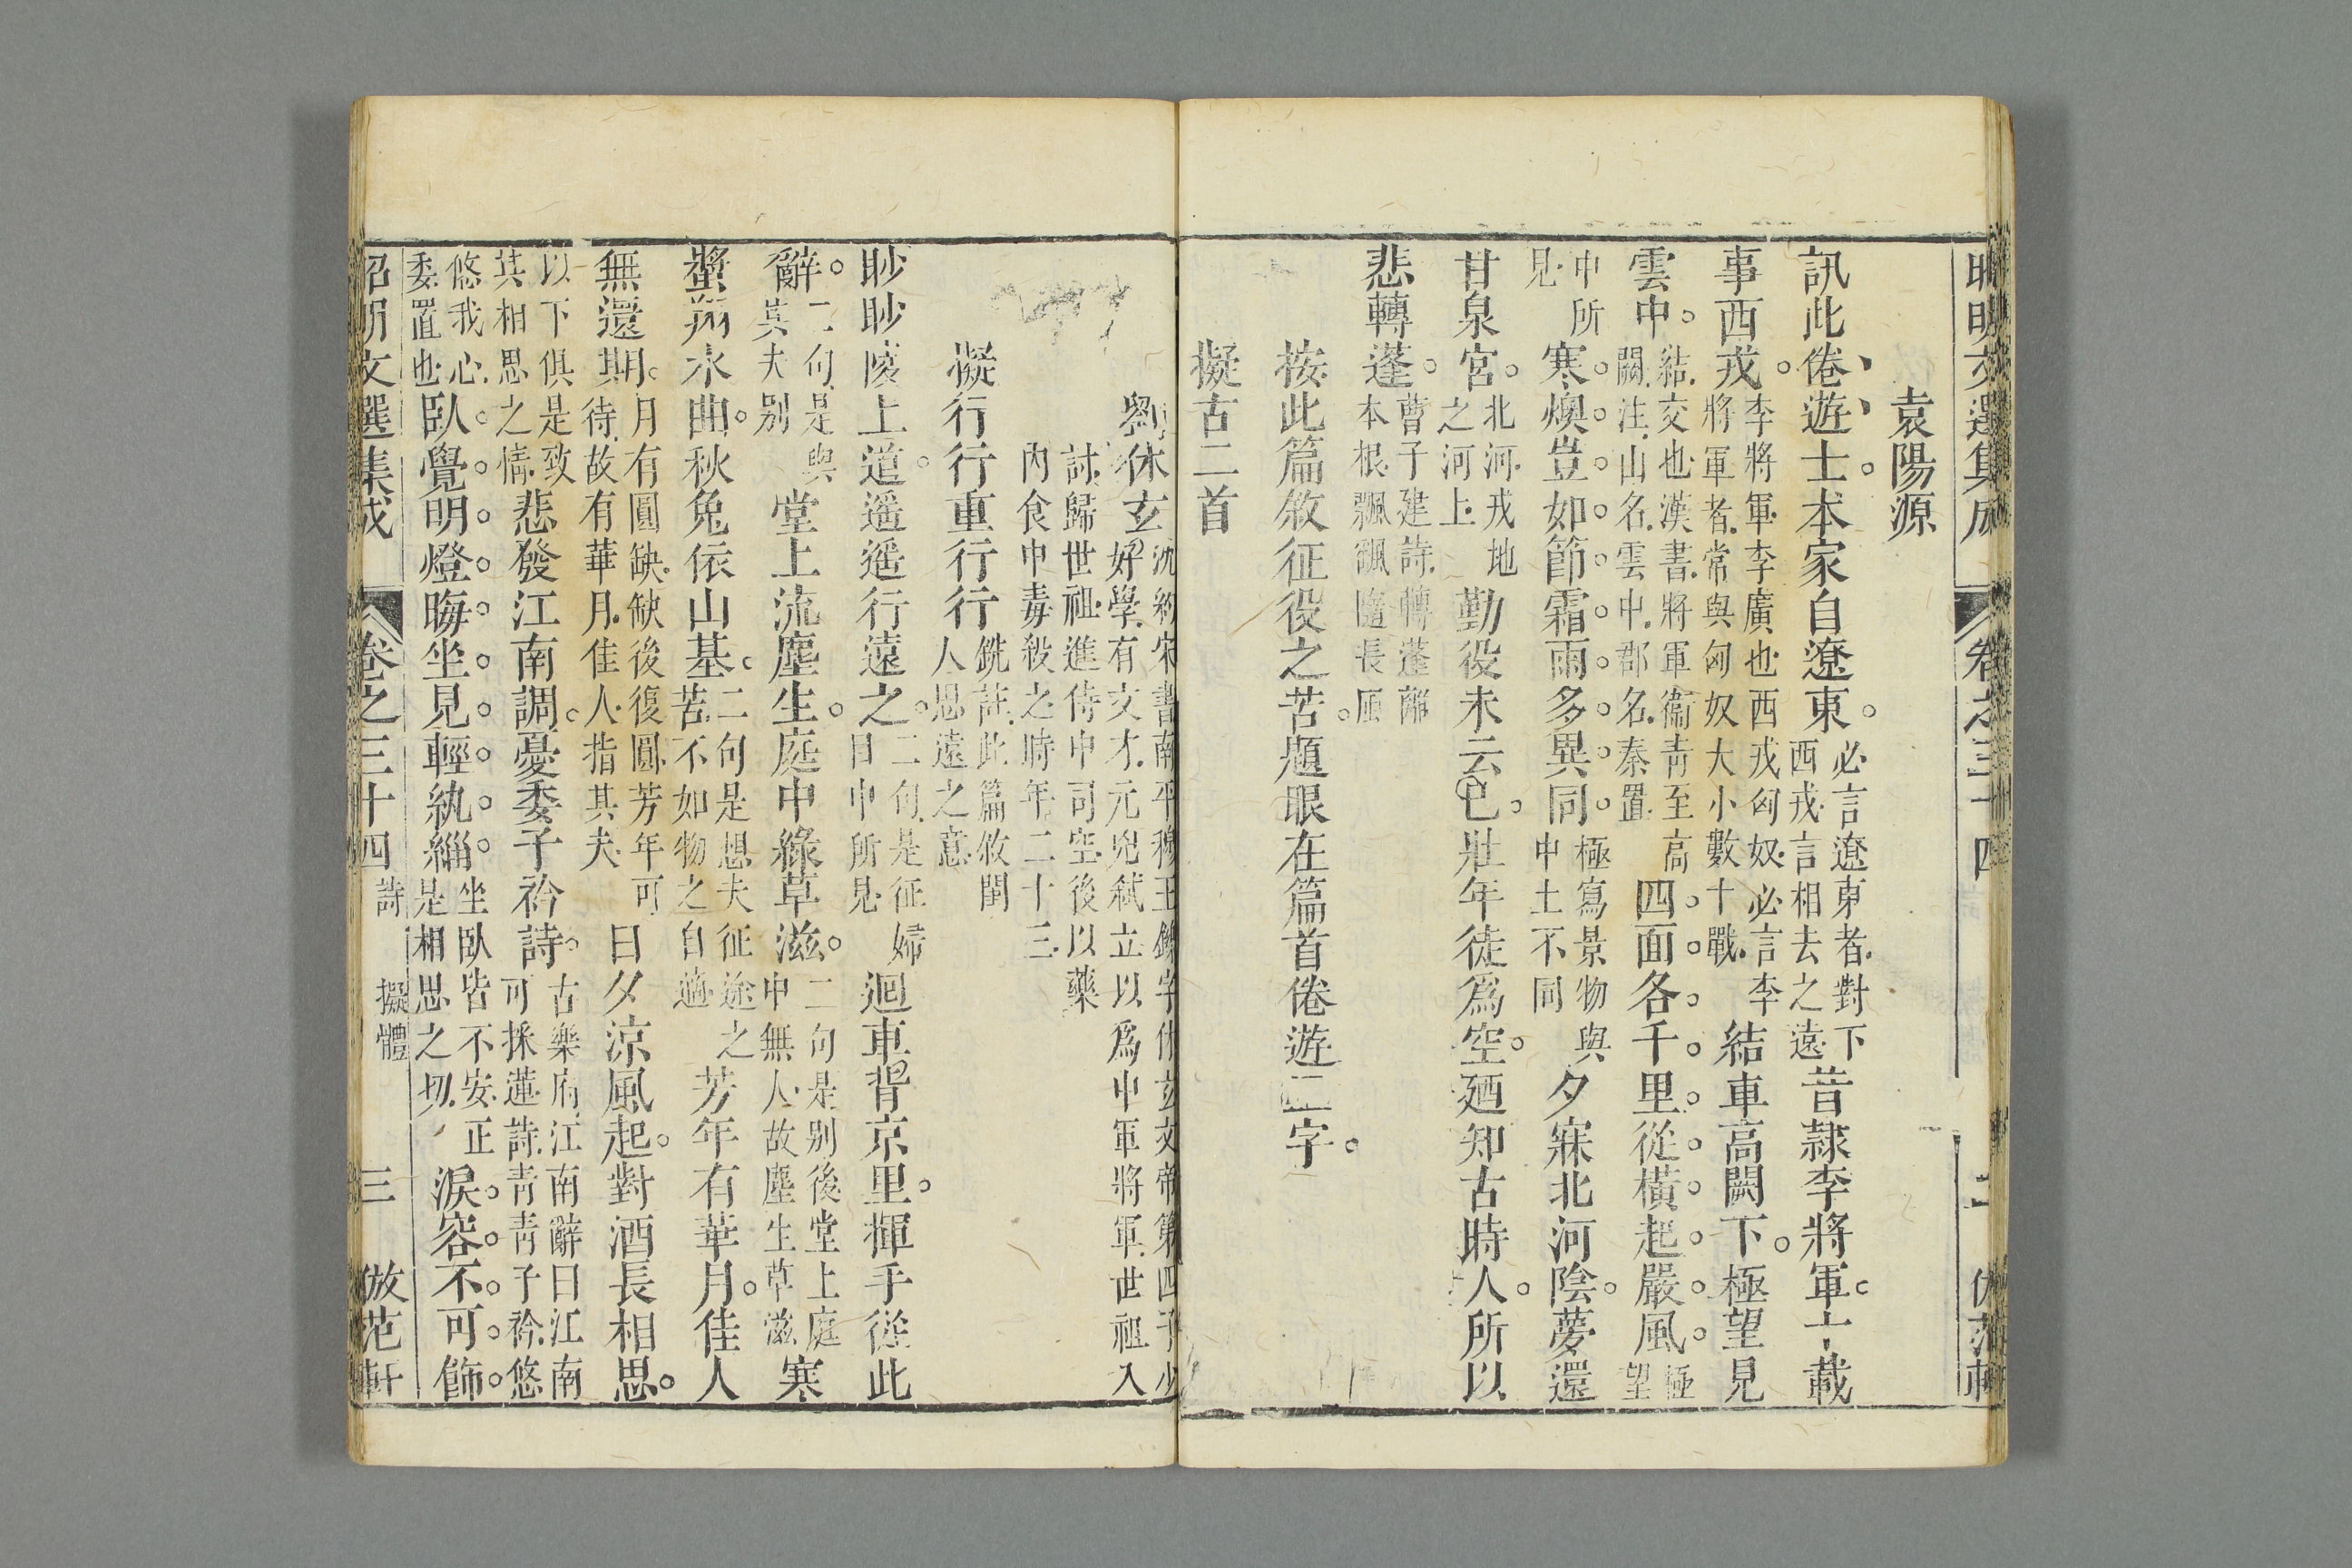 昭明文選集成 卷之三十四
袁陽源
訊此倦遊士。本家自遼東。必言遼東者。對下西戎。言相去之遠。昔隷李將軍。十載
事西戎。李將軍。李廣也。西戎。匈奴。必言李將軍者。常與匈奴大小數十戰。結車高闕下。極望見
雲中。結。交也。漢書。將軍衞青至高闕。注。山名。雲中。郡名。秦置。四面各千里。從橫起嚴風。極望
中所見。寒燠豈如節。霜雨多異同。極寫景物與中土不同。夕寐北河陰。夢還
甘泉宮。北河。戎地之河上。勤役未云已。壯年徒爲空。廼知古時人。所以
悲轉蓬。曹子建詩。轉蓬離本根。飄飄隨長風
按此篇敘征役之苦。題眼在篇首倦遊二字。
擬古二首
劉休玄 沈約宋書南平穆王鑠字休玄文帝第四子少好學。有文才。元兇弑立以爲中軍將軍。世祖入
討。歸世祖。進侍中司空。後以藥內食中毒殺之。時年二十三。
擬行行重行行 銑註。此篇敘閨人思遠之意
眇眇陵上道。遥遥行遠之。二句。是征婦目中所見。迴車背京里。揮手從此
辭。二句。是與其夫别。堂上流塵生。庭中綠草滋。二句是别後堂上庭中無人。故塵生草滋。寒
螿翔水曲。秋兔依山基。二句是想夫征途之苦。不如物之自適。芳年有華月。佳人
無還期。月有圓缺。缺後復圓。芳年可待。故有華月。佳人。指其夫。日夕涼風起。對酒長相思。
以下俱是致其相思之情。悲發江南調。憂委子衿詩。古樂府。江南辭曰江南可採蓮。詩。青青子衿。悠
悠我心。委。置也。臥覺明燈晦。坐見輕紈緇。坐臥皆不安。正是相思之切。淚容不可飾。
昭明文選集成 卷之三十四 詩 擬體 三 倣范軒